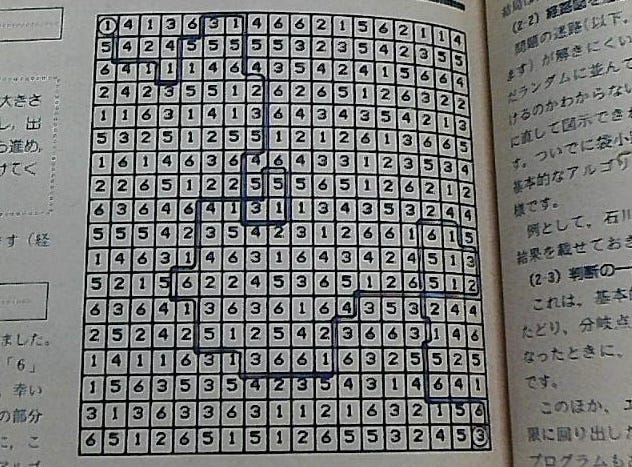 大きさ
し，出
う進め，
けてく
ます（経
れました。
「6」
、幸い
の部分
に，こ
1 4 1 3 6 3 1 4 6 6 2 1 5 6 2 1 1 4
5 4 2 4 5 5 5 5 5 3 2 3 5 4 2 3 5 5
6 4 1 1 1 4 6 4 3 5 4 2 4 1 5 6 6 4
2 4 2 3 5 5 1 2 6 2 6 5 1 2 6 3 2 2
1 1 6 3 1 4 1 3 6 4 3 5 4 2 1 3
5 3 2 5 1 2 5 5 1 2 1 2 6 1 3 6 6 5
1 6 1 4 6 3 6 4 6 4 3 3 1 2 3 5 3 4
2 2 6 5 1 2 2 5 5 5 6 5 1 2 6 2 1 2
6 3 6 4 6 4 1 3 1 1 3 4 3 5 3 2 4 4
5 5 5 4 2 3 5 4 2 3 1 2 6 6 1 6 1 5
1 4 6 3 1 4 6 3 1 6 4 3 4 2 4 5 1 3
5 2 1 5 6 2 2 4 5 3 6 5 1 2 6 5 1 2
6 3 6 4 1 3 6 3 6 1 6 4 3 5 3 2 4 4
2 5 2 4 2 5 1 2 5 4 2 3 6 6 3 1 4 6
1 4 1 1 6 3 1 3 6 6 1 6 3 2 5 5 2 5
1 5 6 3 5 3 5 4 2 3 5 4 3 1 4 6 4 1
3 1 3 6 3 6 3 1 1 2 1 6 3 2 1 5 6
6 5 1 2 6 5 1 5 1 2 6 5 5 3 2 4 5 3
(2-2) 経路図を
問題の迷路(以下，
ます）が解きにくい
だランダムに並んで
けるのかわからない
に直して図示でき
す。ついでに袋小
基本的なアルゴリ
様です。
例として，石川
結果を載せておき
(2-3) 判断の一
これは，基本的
たどり，分岐点
なったときに，
です。
このほか，エ
限に回り出した
プログラムも